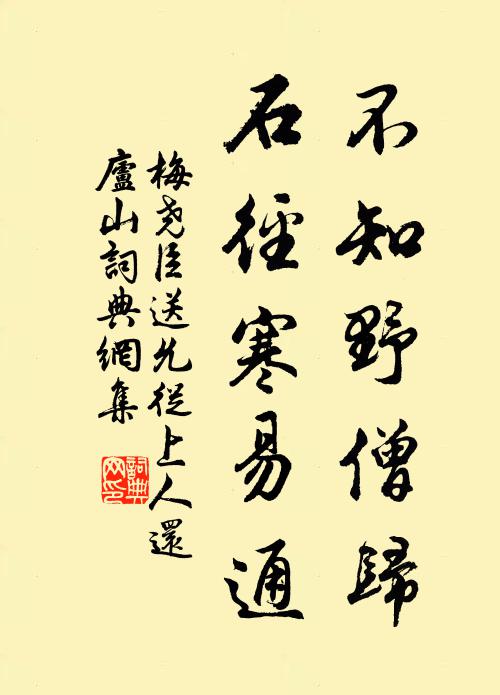 不知野僧歸
石徑寒易通
梅尧臣送允從上人還
廬山詞典網集
詞典
网印